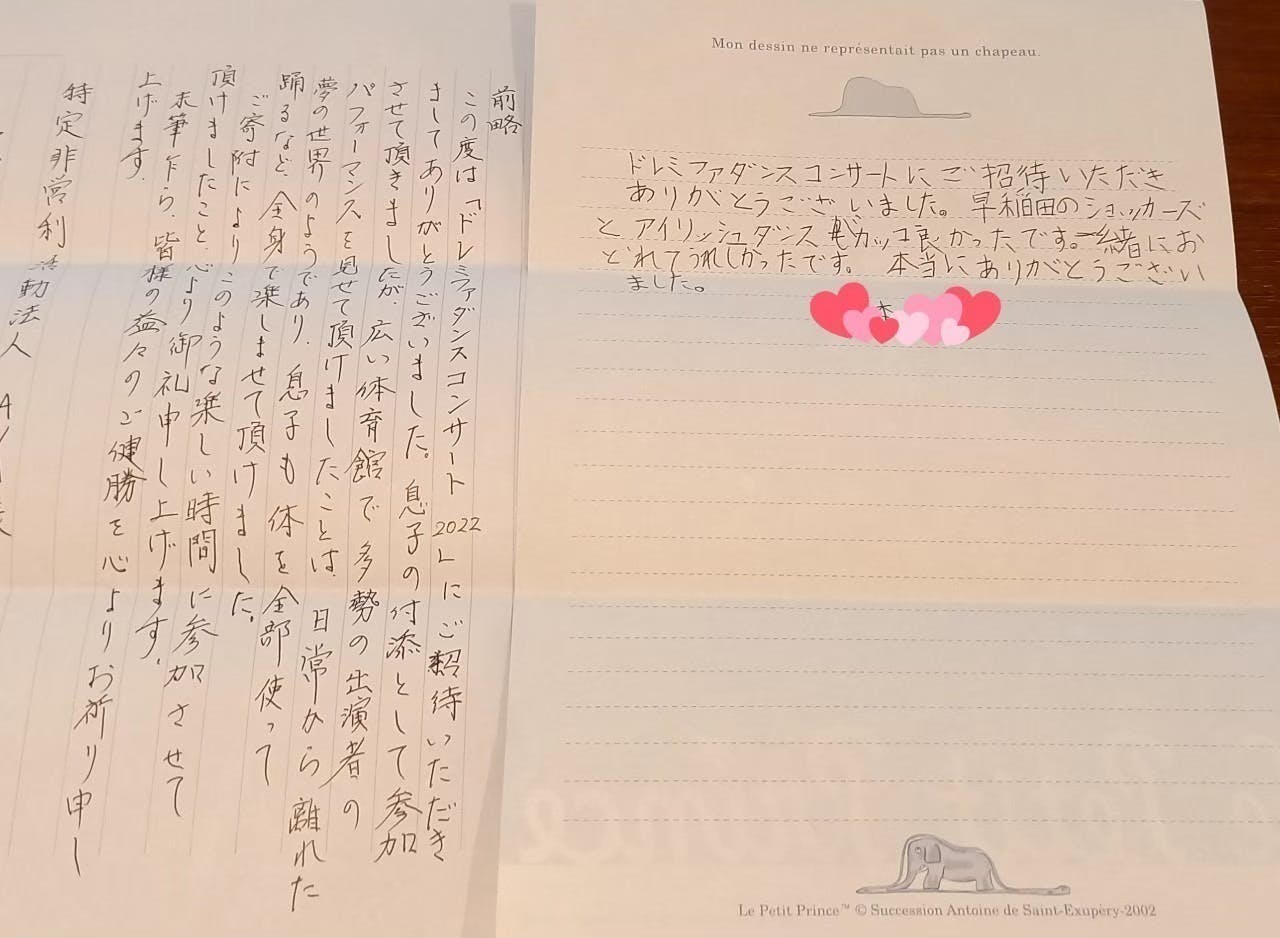 前略
この度は「ドレミファダンスコンサート2022」にご招待いただき
ましてありがとうございました。息子の付添として参加
させて頂きましたが、広い体育館で多勢の出演者の
パフォーマンスを見せて頂けましたことは、日常から離れた
夢の世界のようであり、息子も体を全部使って
踊るなど、全身で楽しませて頂けました。
ご寄附によりこのような楽しい時間に参加させて
頂けましたこと、心より御礼申し上げます。
末筆乍ら、皆様の益々のご健勝を心よりお祈り申し
上げます。
特定非営利活動法人
Mon dessin ne représentait pas un chapeau.
ドレミファダンスコンサートにご招待いただき
ありがとうございました。早稲田のショッカーズ
とアイリッシュダンスがカッコ良かったです。一緒にお
どれてうれしかったです。本当にありがとうござい
ました。
Le Petit Prince™ © Succession Antoine de Saint-Exupéry-2002